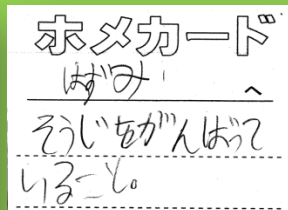 ホメカード
はずみ へ
そうじをがんばって
いること。